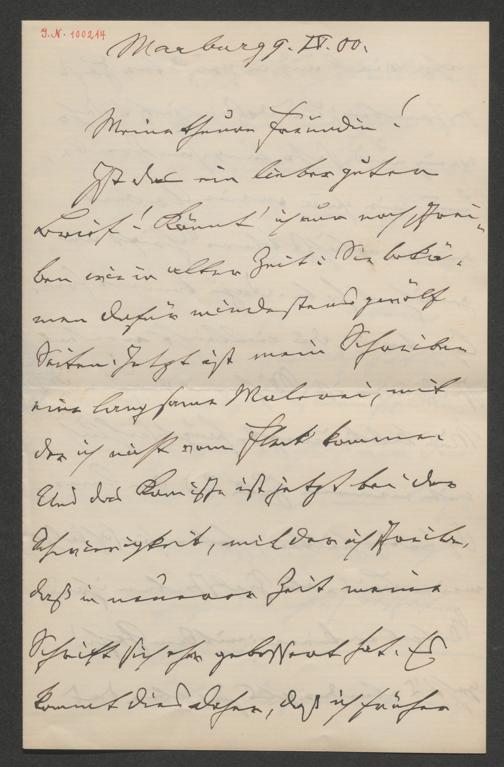 J.N. 100214
Marburg 9. IV. 00.
Meine theure Freundin!
Ist das ein lieber guter
Brief! Könnt' ich nur noch schrei-
ben wie in alter Zeit: Sie bekä-
men dafür mindestens zwölf
Seiten. Jetzt ist mein Schreiben
eine langsame Malerei, mit
der ich nicht vom Fleck komme.
Und das Komische ist jetzt bei der
Schwierigkeit, mit der ich schreibe,
daß in neuerer Zeit meine
Schrift sich eher gebessert hat. Es
kommt dies daher, daß ich früher